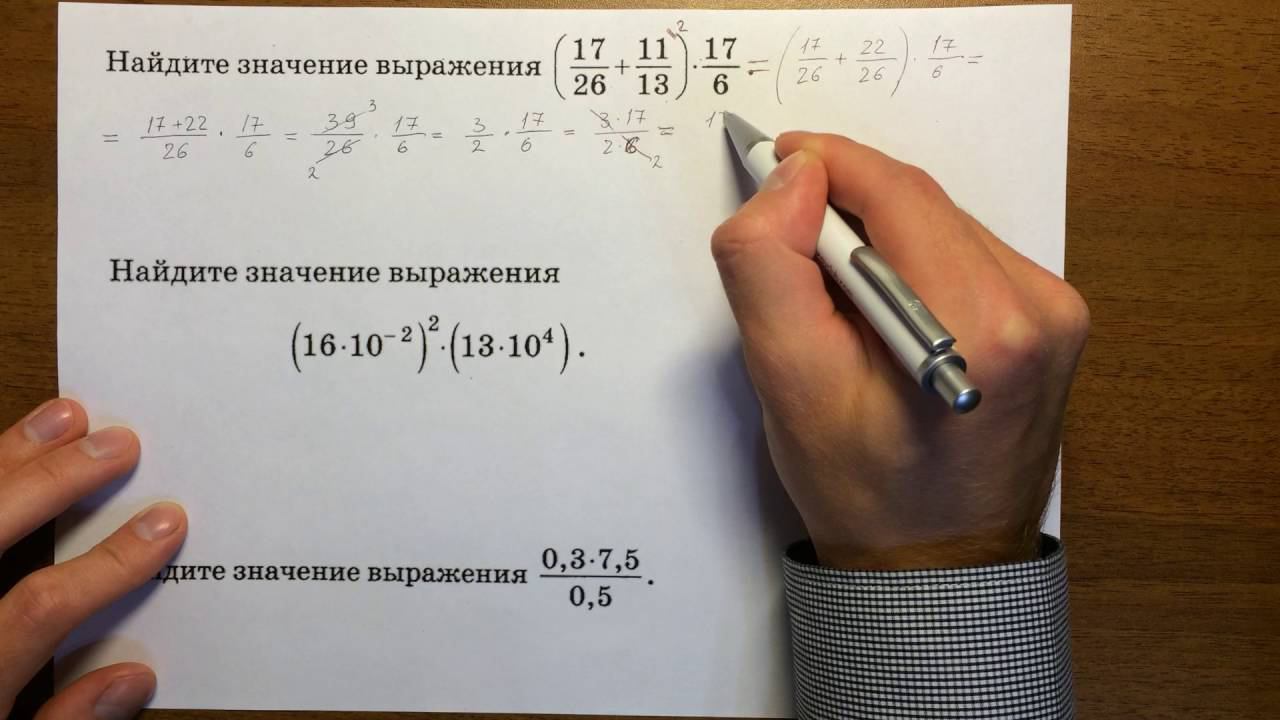 Найдите значение выражения (17/26 + 11/13\²) · 17/6 = (17/26 + 22/26) · 17/6 =
= (17+22)/26 · 17/6 = 39³/26₂ · 17/6 = 3/2 · 17/6 = (3·17)/(2·6₂) = 17
Найдите значение выражения
(16·10⁻²)²·(13·10⁴).
дите значение выражения (0,3·7,5)/(0,5).